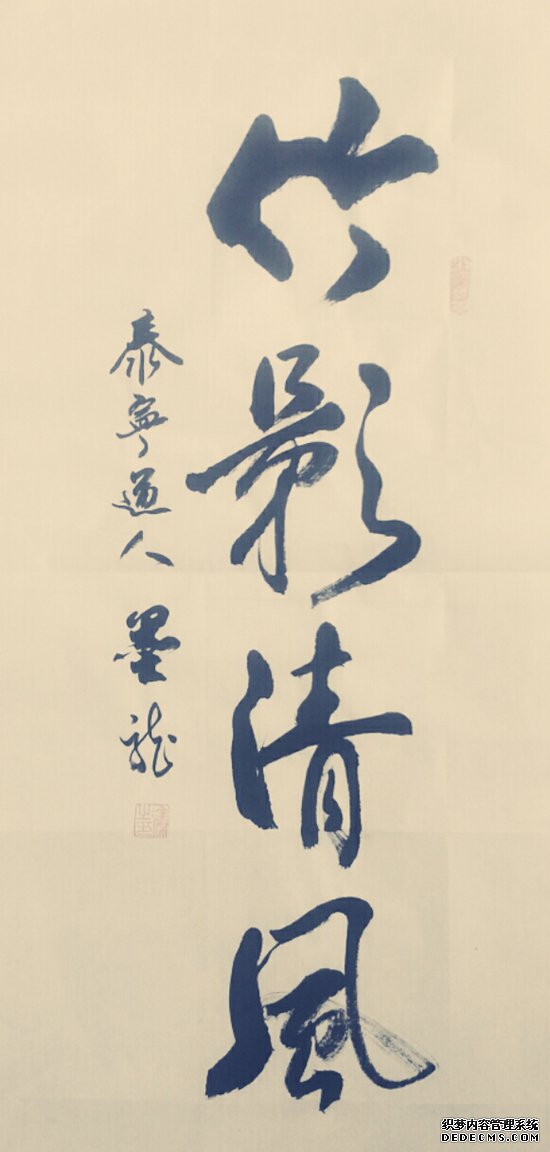 竹影清風
泰寧道人 墨龍
织梦内容管理系统
DEDECMS.COM